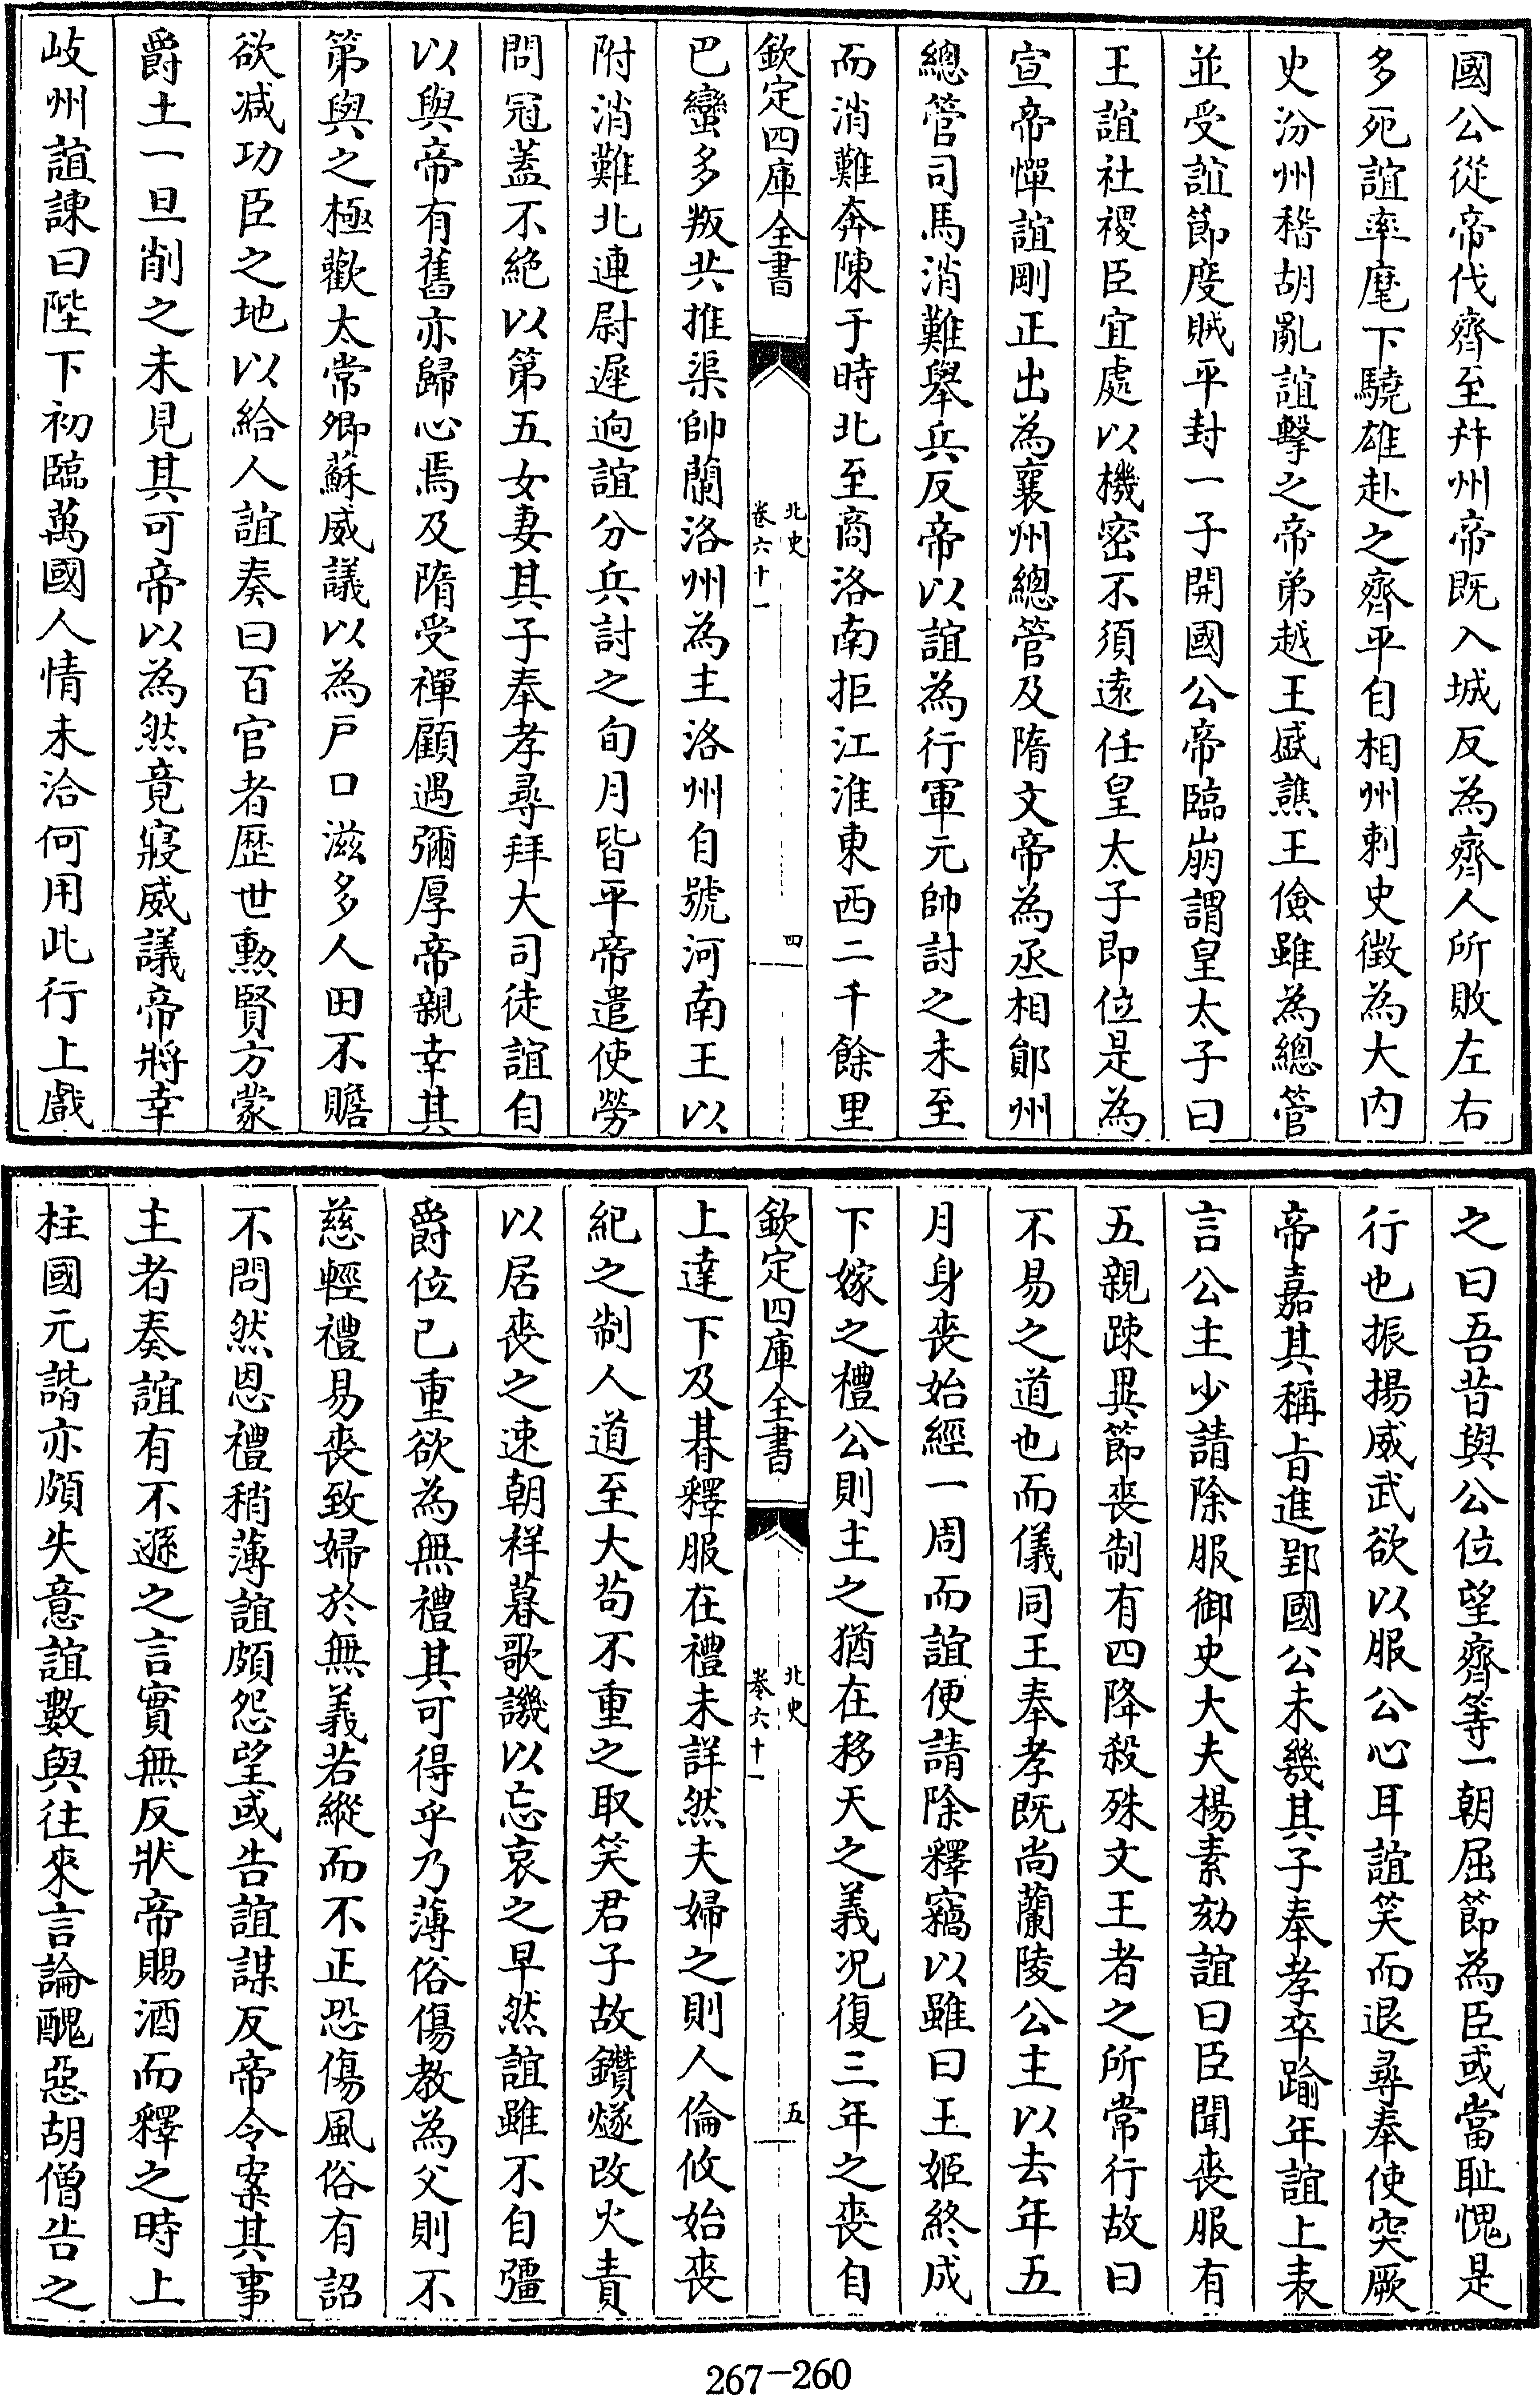 國公從帝伐齊至并州帝既入城反為齊人所敗左右
多死誼率麾下驍雄赴之齊平自相州刺史徵為大内
史汾州稽胡亂誼擊之帝弟越王盛譙王儉雖為總管
並受誼節度賊平封一子開國公帝臨崩謂皇太子曰
王誼社稷臣宜處以機密不須逺任皇太子即位是為
宣帝憚誼剛正出為襄州總管及隋文帝為丞相鄖州
總管司馬消難舉兵反帝以誼為行軍元帥討之未至
而消難奔陳于時北至商洛南拒江淮東西二千餘里
欽定四庫全書
北史
卷六十一
四
巴蠻多叛共推渠帥蘭洛州為主洛州自號河南王以
附消難北連尉遲迥誼分兵討之旬月皆平帝遣使勞
問冠蓋不絶以第五女妻其子奉孝尋拜大司徒誼自
以與帝有舊亦歸心焉及隋受禪顧遇彌厚帝親幸其
第與之極歡太常卿蘇威議以為戸口滋多人田不贍
欲减功臣之地以給人誼奏曰百官者歴世勲賢方蒙
爵土一旦削之未見其可帝以為然竟寢威議帝將幸
岐州誼諫曰陛下初臨萬國人情未洽何用此行上戲
之曰吾昔與公位望齊等一朝屈節為臣或當恥愧是
行也振揚威武欲以服公心耳誼笑而退尋奉使突厥
帝嘉其稱㫖進郢國公未㡬其子奉孝卒踰年誼上表
言公主少請除服御史大夫楊素劾誼曰臣聞喪服有
五親踈異節喪制有四降殺殊文王者之所常行故曰
不易之道也而儀同王奉孝既尚蘭陵公主以去年五
月身喪始經一周而誼便請除釋竊以雖曰王姬終成
下嫁之禮公則主之猶在移天之義况復三年之喪自
欽定四庫全書
北史
卷六十一
五
上達下及朞釋服在禮未詳然夫婦之則人倫攸始喪
紀之制人道至大茍不重之取笑君子故鑽燧改火責
以居喪之速朝祥暮歌譏以忘哀之早然誼雖不自彊
爵位已重欲為無禮其可得乎乃薄俗傷教為父則不
慈輕禮易喪致婦於無義若縱而不正恐傷風俗有詔
不問然恩禮稍薄誼頗怨望或告誼謀反帝令案其事
主者奏誼有不遜之言實無反狀帝賜酒而釋之時上
柱國元諧亦頗失意誼數與往來言論醜惡胡僧告之
267-260